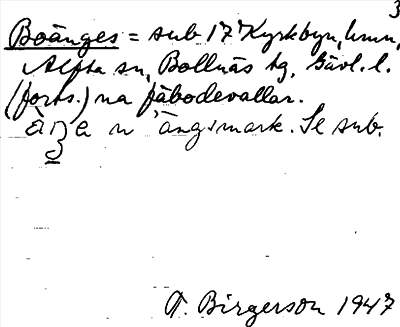 3
Boänges = sub 17 Kyrkbyn, hmn,
Alfta sn, Bollnäs tg, Gävl. l.
(forts.) na fäbodevallar.
n 'ängsmark. Se sub.
T. Birgerson 1947